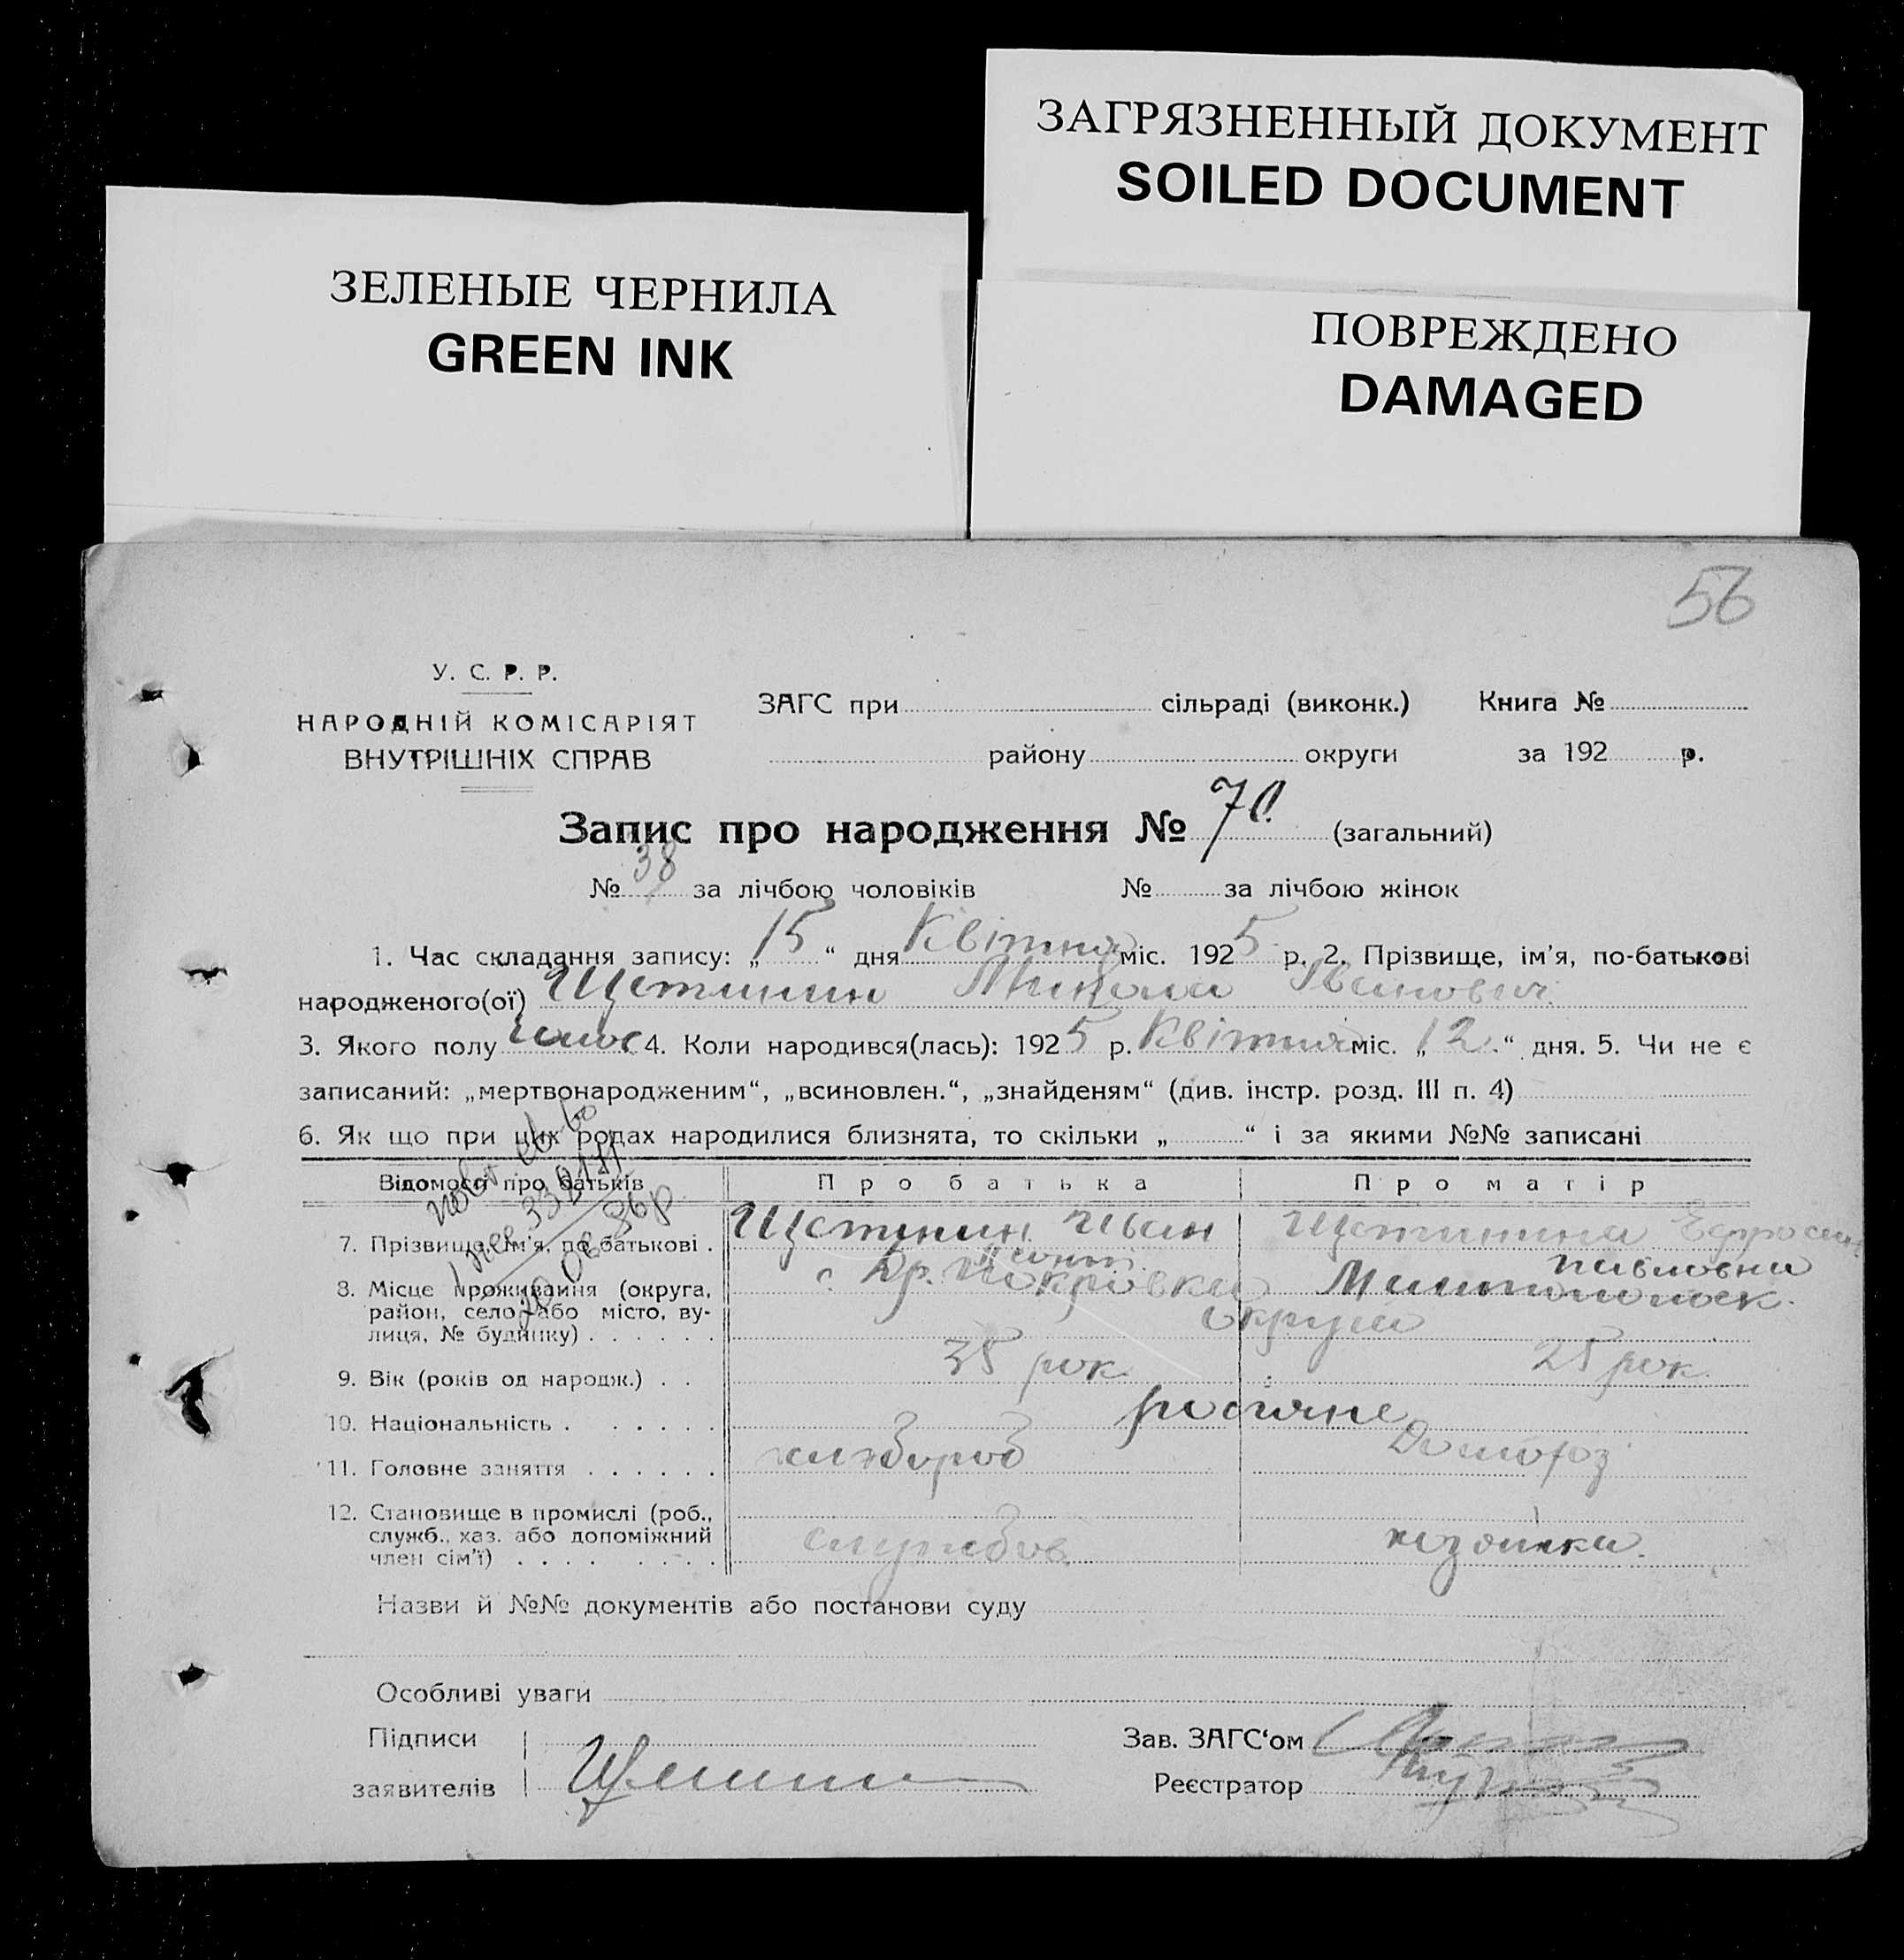 ЗАГРЯЗНЕННЫЙ ДОКУМЕНТ
SOILED DOCUMENT
ЗЕЛЕНЫЕ ЧЕРНИЛА
GREEN INK
ПОВРЕЖДЕНО
DAMAGED
56
У. С. Р. Р.
НАРОДНІЙ КОМІСАРІЯТ
ВНУТРІШНІХ СПРАВ
ЗАГС при сільраді (виконк.) Книга №
району округи за 192 р.
Запис про народження № 70 (загальний)
№ 38 за лічбою чоловіків № за лічбою жінок
1. Час складання запису: „15“ дня Квітня міс. 1925 р. 2. Прізвище, ім'я, по-батькові
народженого(ої) Щетинин Микола Іванович
3. Якого полу 4. Коли народився(лась): 1925 р. Квітня міс. „12“ дня. 5. Чи не є
записаний: „мертвонародженим“, „всиновлен.“, „знайденям“ (див. інстр. розд. III п. 4)
6. Як що при цих родах народилися близнята, то скільки „ “ і за якими №№ записані
Відомості про батьків Про батька Про матір
7. Прізвище, ім'я, по батькові . Щетинин Иван Щетинина Ефросин.
Павловна
8. Місце проживання (округа, район, село або місто, вулиця, № будинку) . . . . . . с. Покровка Мелитопольск.
округи
9. Вік (років од народж.) . . 35 рок. 25 рок.
10. Національність . . . . . . росіяне
11. Головне заняття . . . . . . хлібороб Домогоз.
12. Становище в промислі (роб., служб., хаз. або допоміжний член сім'ї) . . . . . . . . хозяйка.
Назви й №№ документів або постанови суду
Особливі уваги
Підписи
заявителів
Зав. ЗАГС'ом
Реєстратор